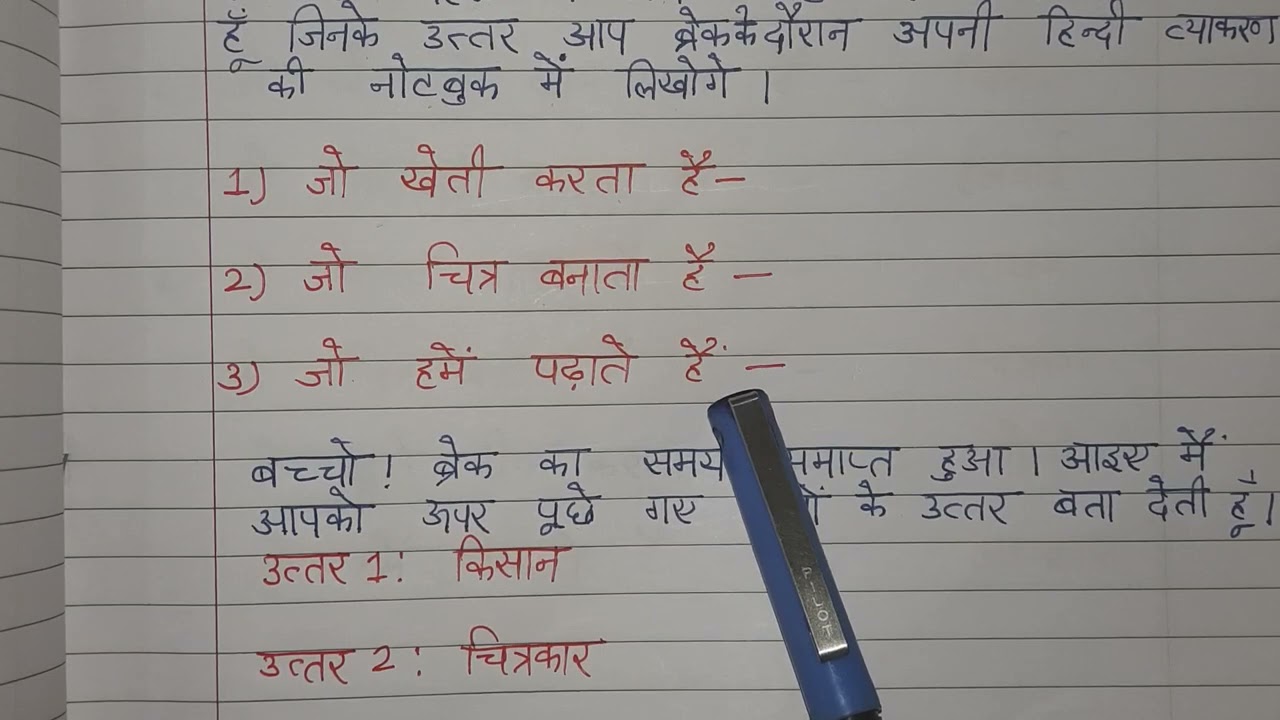 हूँ जिनके उत्तर आप ब्रेक के दौरान अपनी हिन्दी व्याकरण
की नोटबुक में लिखोगे ।
1) जो खेती करता है –
2) जो चित्र बनाता है –
3) जो हमें पढ़ाते हैं –
बच्चो ! ब्रेक का समय समाप्त हुआ । आइए मैं
आपको ऊपर पूछे गए के उत्तर बता देती हूँ ।
उत्तर 1 : किसान
उत्तर 2 : चित्रकार
PILOT